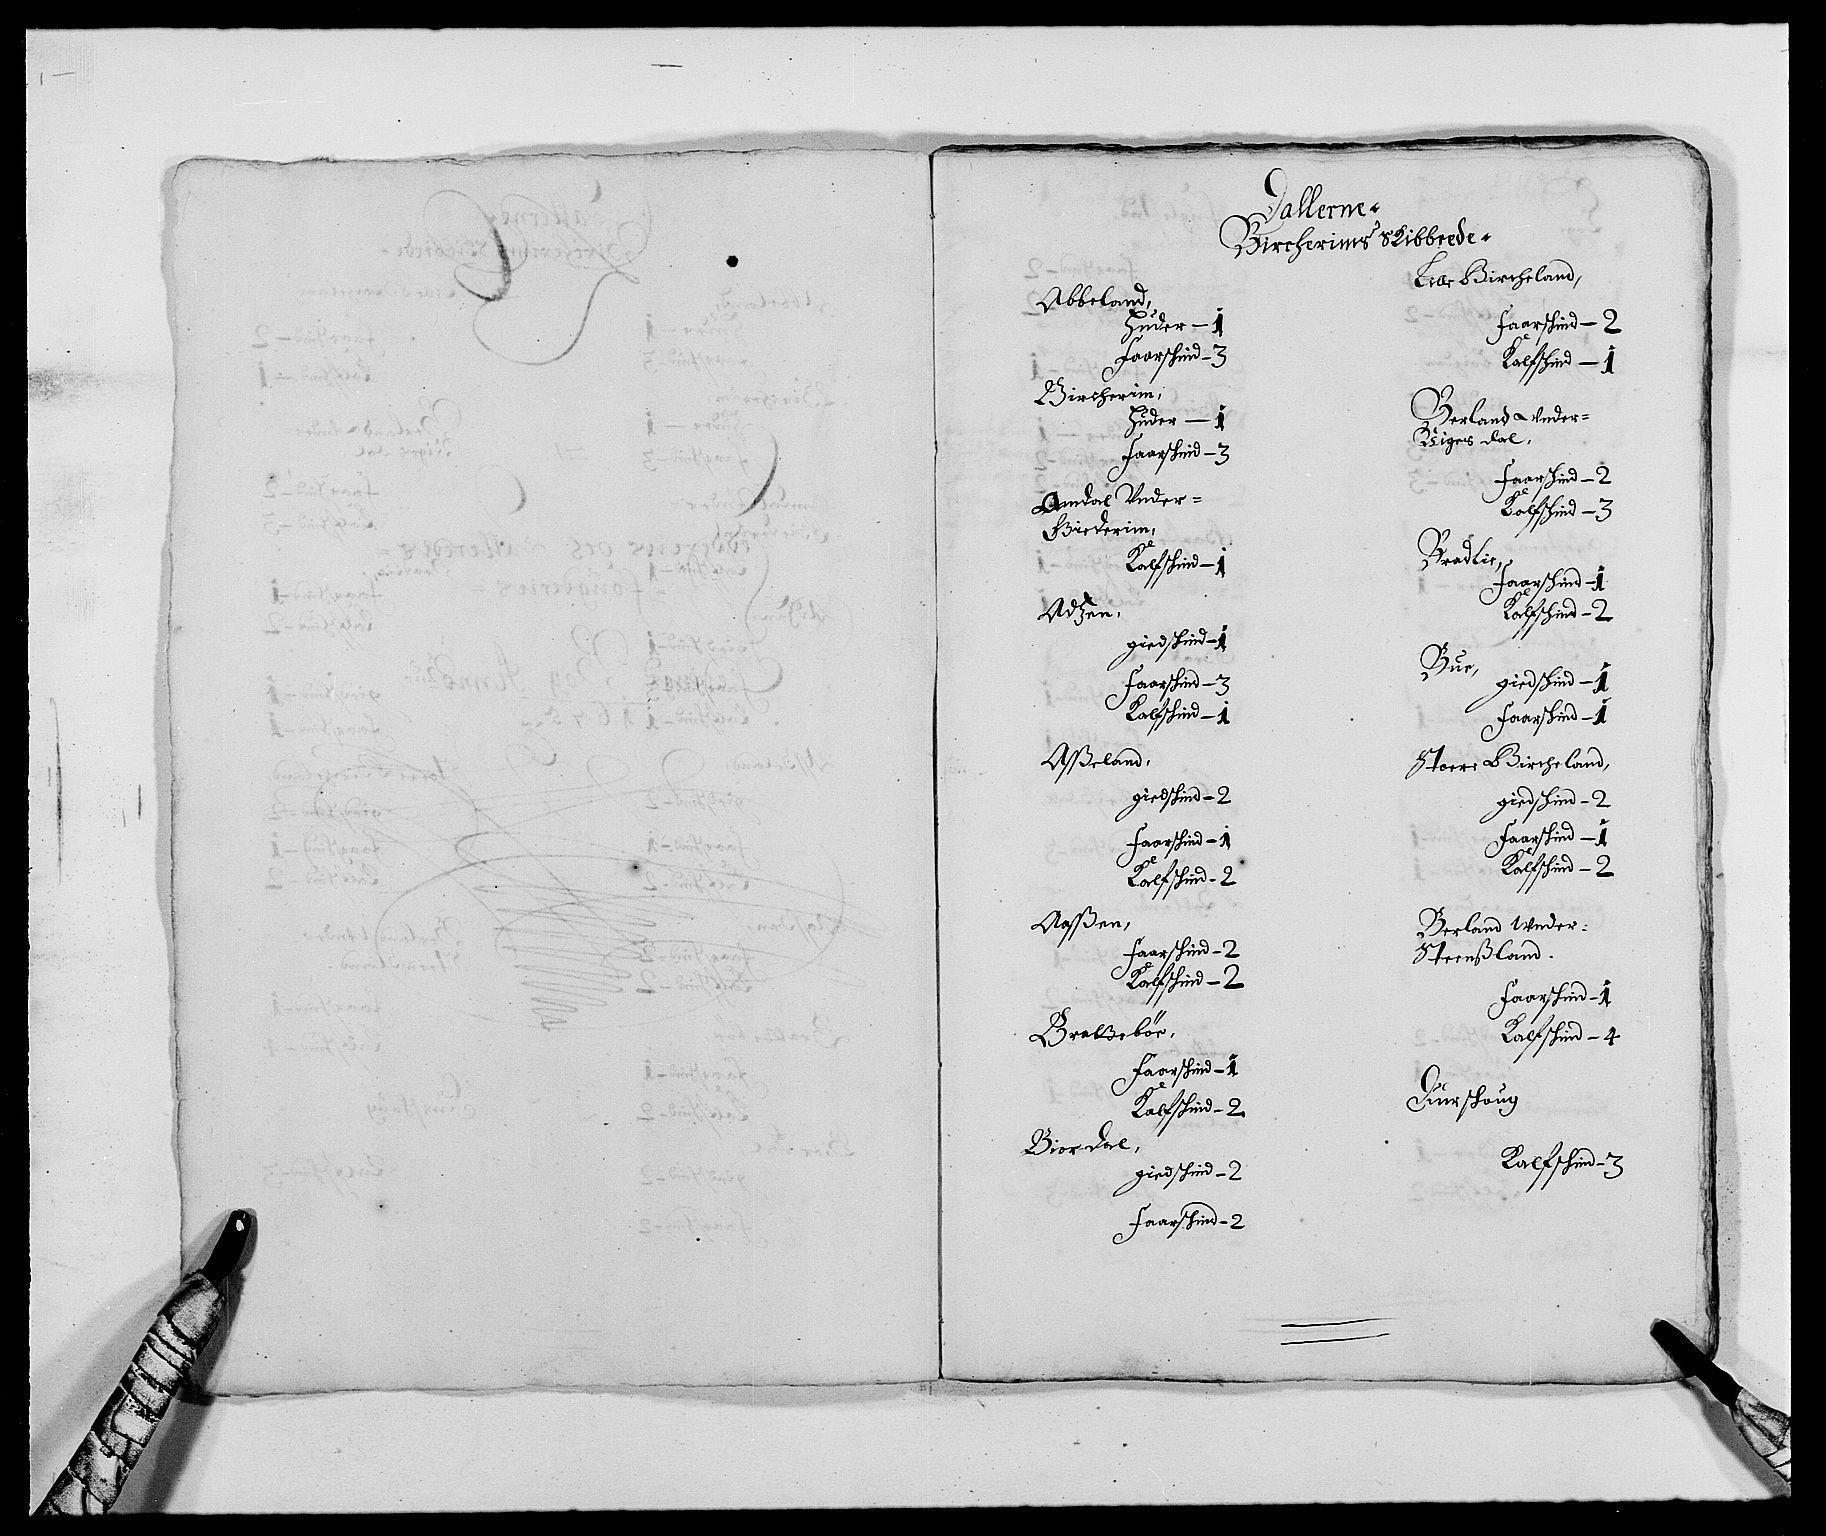 Dallerne
Bircherims Skibbrede
Abbeland,
Huder – 1
Faarskind – 3
Bircherim,
Huder – 1
Faarskind – 3
Omdal Vnder =
Birderim,
Kalfskind – 1
Adzen,
giedskind – 1
Faarskind – 3
Kalfskind – 1
Aßeland,
giedskind – 2
Faarskind – 1
Kalfskind – 2
Aaßen,
Faarskind – 2
Kalfskind – 2
Braßebör,
Faarskind – 1
Kalfskind – 2
Biordal,
giedskind – 2
Faarskind – 2
Lille Bircheland,
Faarskind – 2
Kalfskind – 1
Berland Vnder =
Rigers dal,
Faarskind – 2
Kalfskind – 3
Bradlie,
Faarskind – 1
Kalfskind – 2
Bue,
giedskind – 1
Faarskind – 1
Stoere Bircheland,
giedskind – 2
Faarskind – 1
Kalfskind – 2
Berland Wnder =
Steenßland.
Faarskind – 1
Kalfskind – 4
Duurskoug
Kalfskind – 3